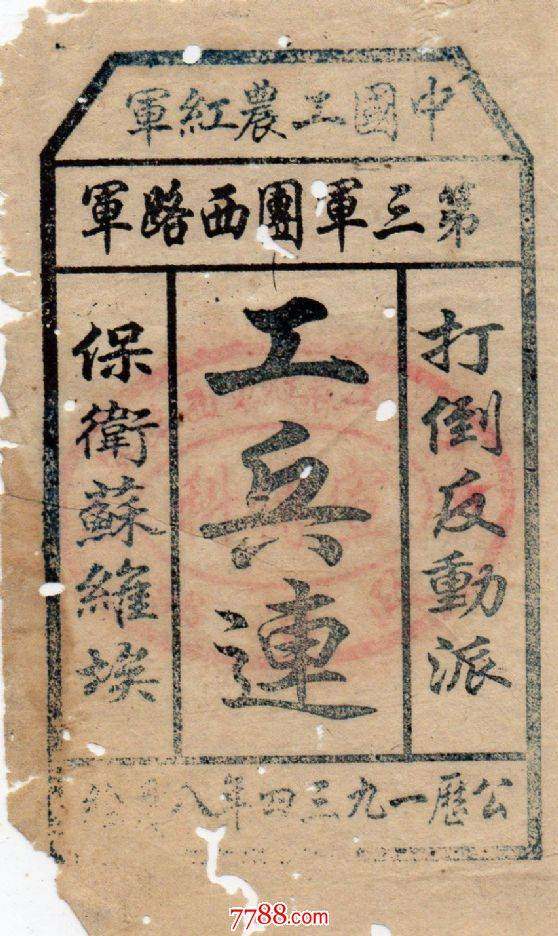 中國工農紅軍
第三軍團西路軍
打倒反動派
工兵連
保衛蘇維埃
公歷一九三四年八月
7788.com